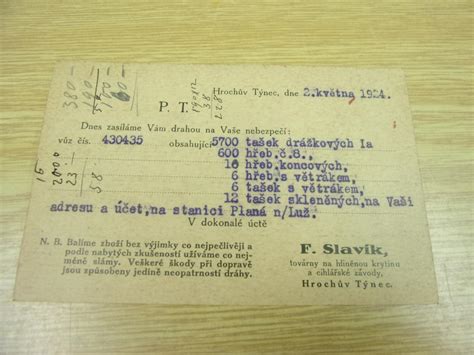 380.—
190
190
Hrochův Týnec, dne 2.května 1924.
P. T.
38
228
Dnes zasíláme Vám drahou na Vaše nebezpečí:
vůz čís. 430435 obsahující 5700 tašek drážkových Ia
600 hřeb.č.8.,
10 hřeb.koncových,
6 hřeb.s větrákem,
6 tašek s větrákem,
12 tašek skleněných,na Vaši
adresu a účet,na stanici Planá n/Luž.
V dokonalé úctě
N. B. Balíme zboží bez výjimky co nejpečlivěji a
podle nabytých zkušeností užíváme co nej-
méně slámy. Veškeré škody při dopravě
jsou způsobeny jedině neopatrností dráhy.
F. Slavík,
továrny na hliněnou krytinu
a cihlářské závody,
Hrochův Týnec.